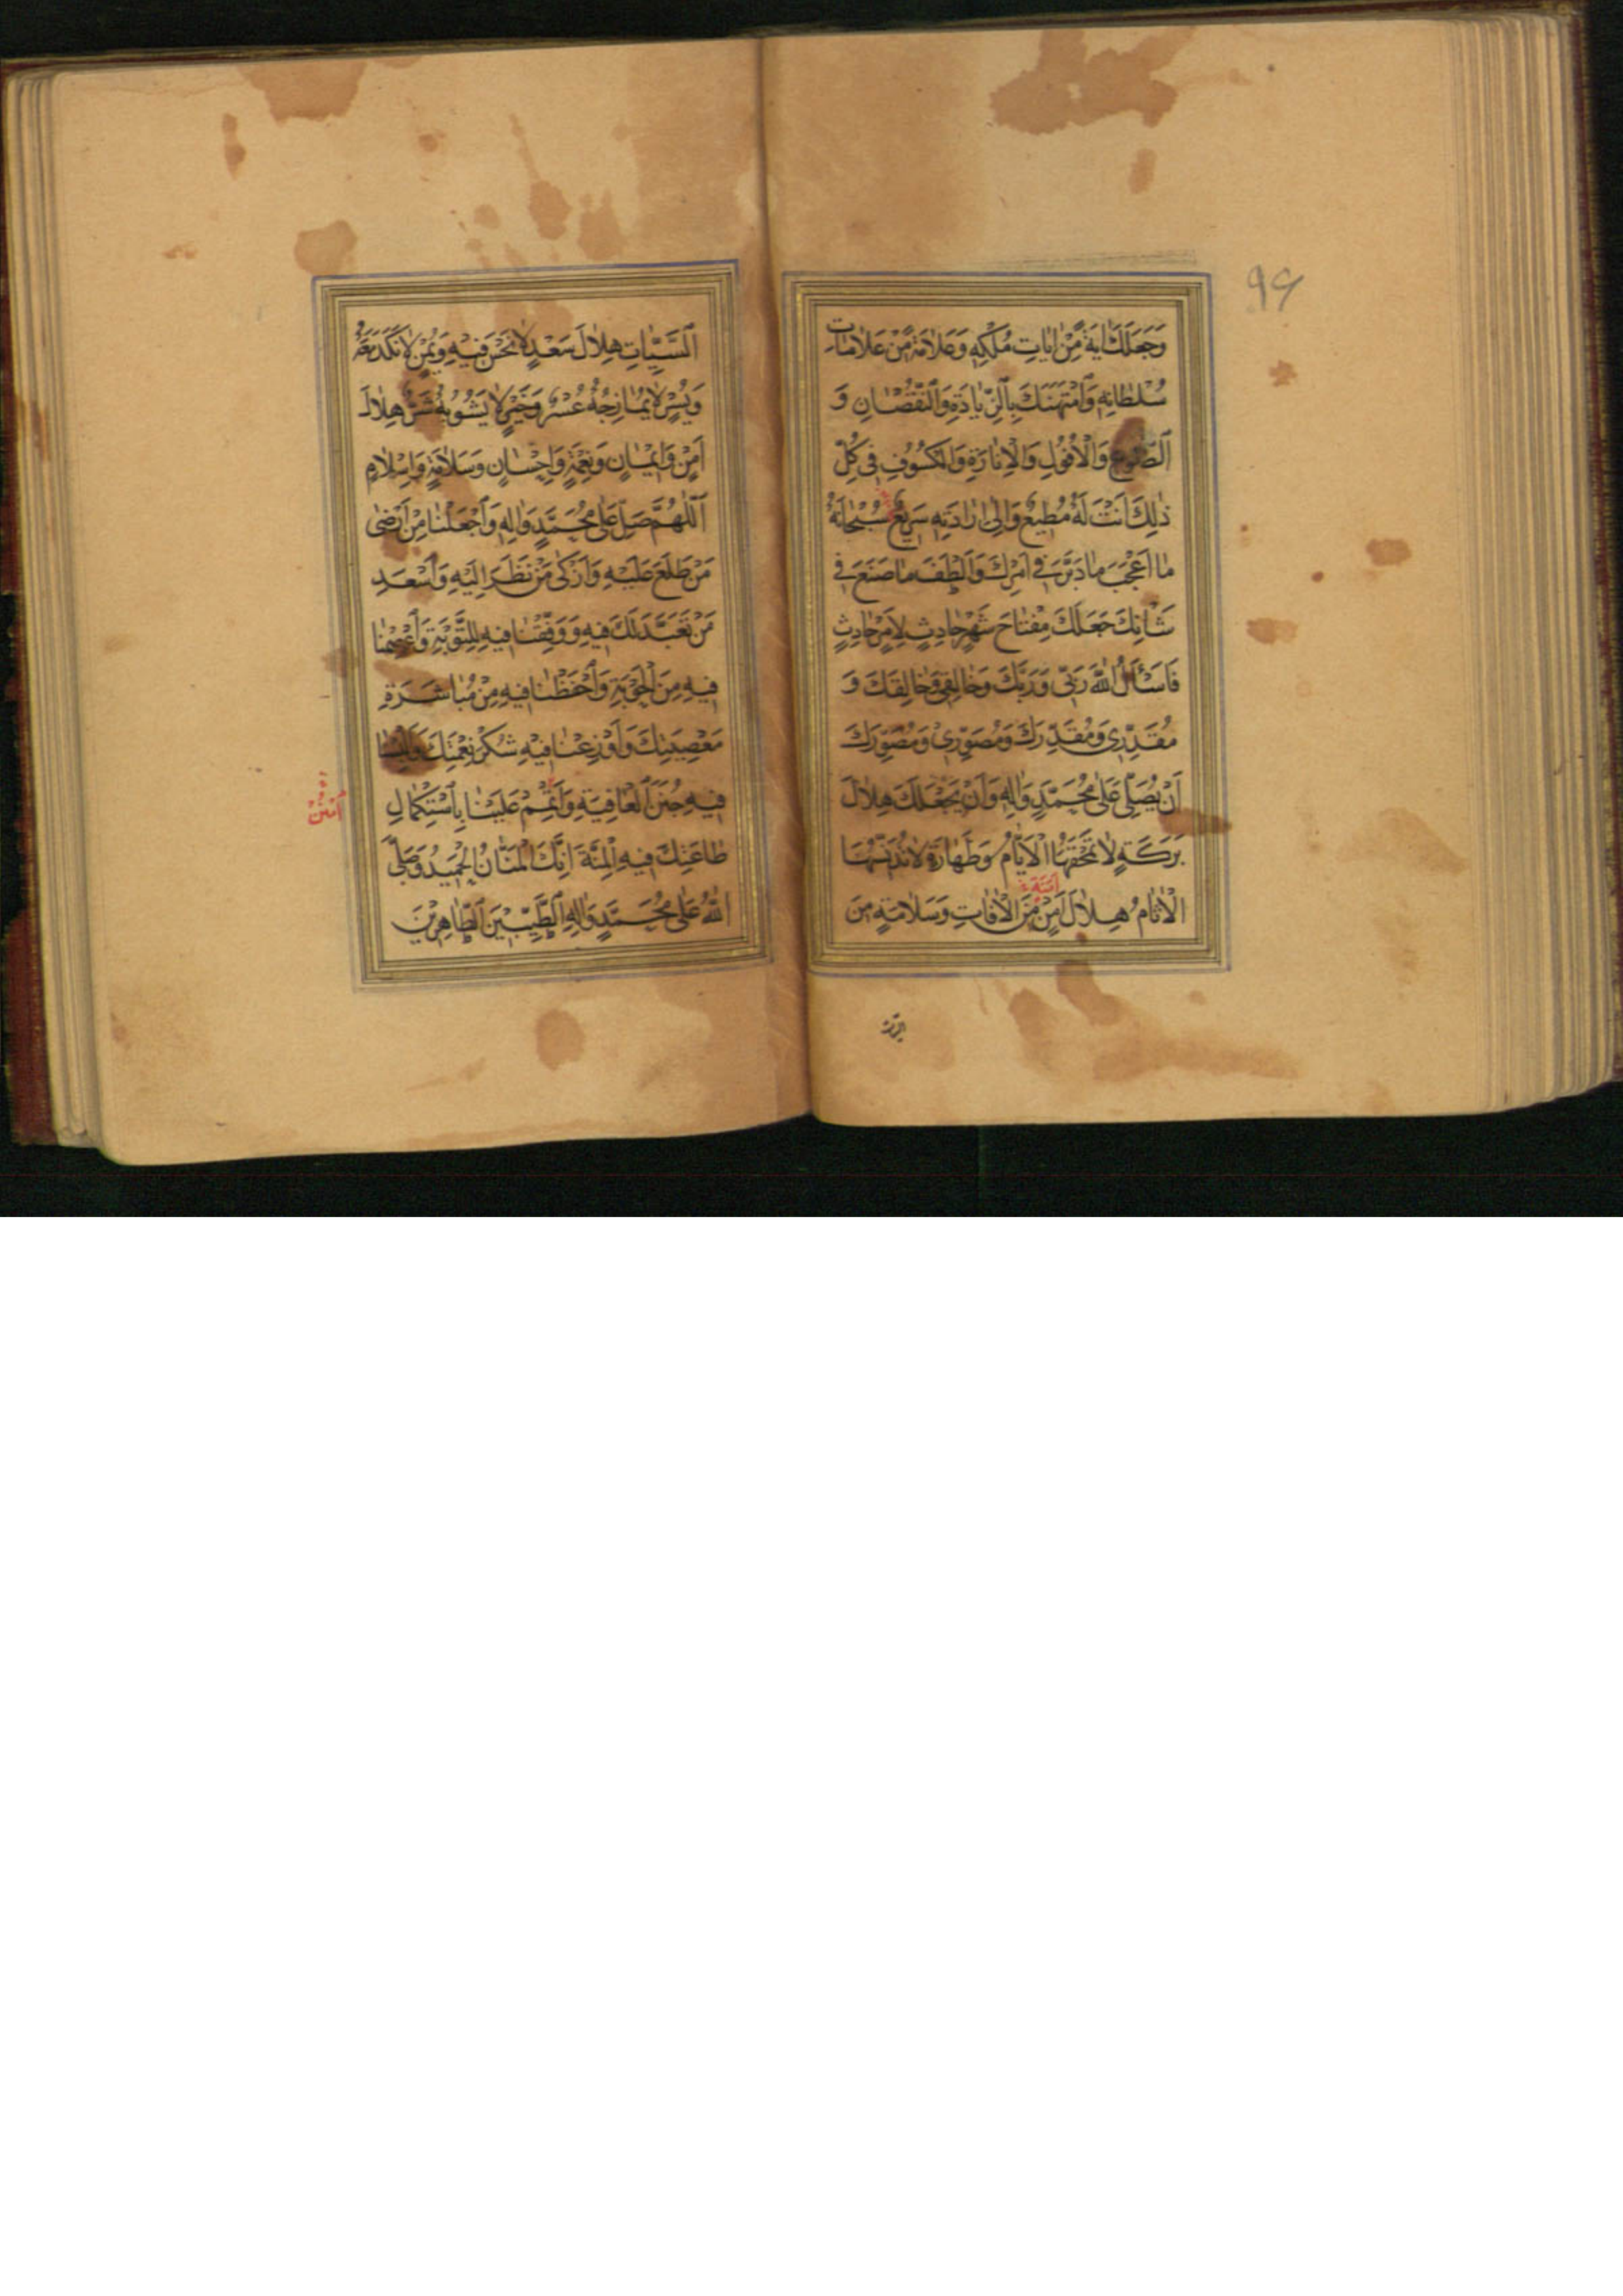 ۹۹
وَجَعَلَكَ اٰيَةً مِّنْ اٰيَاتِ مُلْكِهٖ وَعَلَامَةً مِّنْ عَلَامَاتِ
سُلْطَانِهٖ وَامْتَهَنَكَ بِالزِّيَادَةِ وَالنُّقْصَانِ وَ
الطُّلُوعِ وَالْاُفُولِ وَالْاِنَارَةِ وَالْكُسُوفِ فِي كُلِّ
ذٰلِكَ اَنْتَ لَهُ مُطِيعٌ وَاِلٰى اِرَادَتِهٖ سَرِيعٌ سُبْحَانَهُ
مَا اَعْجَبَ مَا دَبَّرَ فِي اَمْرِكَ وَاَلْطَفَ مَا صَنَعَ فِي
شَانِكَ جَعَلَكَ مِفْتَاحَ شَهْرٍ حَادِثٍ لِاَمْرٍ حَادِثٍ
فَاَسْئَلُ اللّٰهَ رَبِّي وَرَبَّكَ وَخَالِقِي وَخَالِقَكَ وَ
مُقَدِّرِي وَمُقَدِّرَكَ وَمُصَوِّرِي وَمُصَوِّرَكَ
اَنْ يُصَلِّيَ عَلٰى مُحَمَّدٍ وَاٰلِهٖ وَاَنْ يَجْعَلَكَ هِلَالَ
بَرَكَةٍ لَا تَمْحَقُهَا الْاَيَّامُ وَطَهَارَةٍ لَا تُدَنِّسُهَا
الْاٰثَامُ هِلَالَ اَمْنٍ مِّنَ الْاٰفَاتِ وَسَلَامَةٍ مِنَ
السَّيِّئَاتِ هِلَالَ سَعْدٍ لَا نَحْسَ فِيهِ وَيُمْنٍ لَا نَكَدَ مَعَهُ
وَيُسْرٍ لَا يُمَازِجُهُ عُسْرٌ وَخَيْرٍ لَا يَشُوبُهُ شَرٌّ هِلَالَ
اَمْنٍ وَاِيْمَانٍ وَنِعْمَةٍ وَاِحْسَانٍ وَسَلَامَةٍ وَاِسْلَامٍ
اَللّٰهُمَّ صَلِّ عَلٰى مُحَمَّدٍ وَاٰلِهٖ وَاجْعَلْنَا مِنْ اَرْضٰى
مَنْ طَلَعَ عَلَيْهِ وَاَزْكٰى مَنْ نَظَرَ اِلَيْهِ وَاَسْعَدِ
مَنْ تَعَبَّدَ لَكَ فِيهِ وَوَفِّقْنَا فِيهِ لِلتَّوْبَةِ وَاعْصِمْنَا
فِيهِ مِنَ الْحَوْبَةِ وَاحْفَظْنَا فِيهِ مِنْ مُبَاشَرَةِ
مَعْصِيَتِكَ وَاَوْزِعْنَا فِيْهِ شُكْرَ نِعْمَتِكَ وَاَلْبِسْنَا
فِيهِ جُنَنَ الْعَافِيَةِ وَاَتْمِمْ عَلَيْنَا بِاسْتِكْمَالِ
طَاعَتِكَ فِيهِ الْمِنَّةَ اِنَّكَ الْمَنَّانُ الْحَمِيدُ وَصَلَّى
اللّٰهُ عَلٰى مُحَمَّدٍ وَاٰلِهِ الطَّيِّبِيْنَ الطَّاهِرِيْنَ